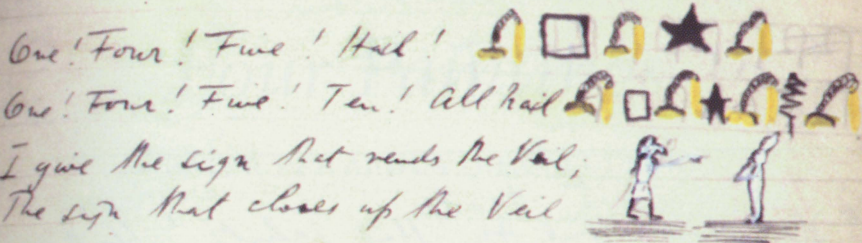 One! Four! Five! Hail!
One! Four! Five! Ten! All hail
I give the sign that rends the Veil;
The sign that closes up the Veil